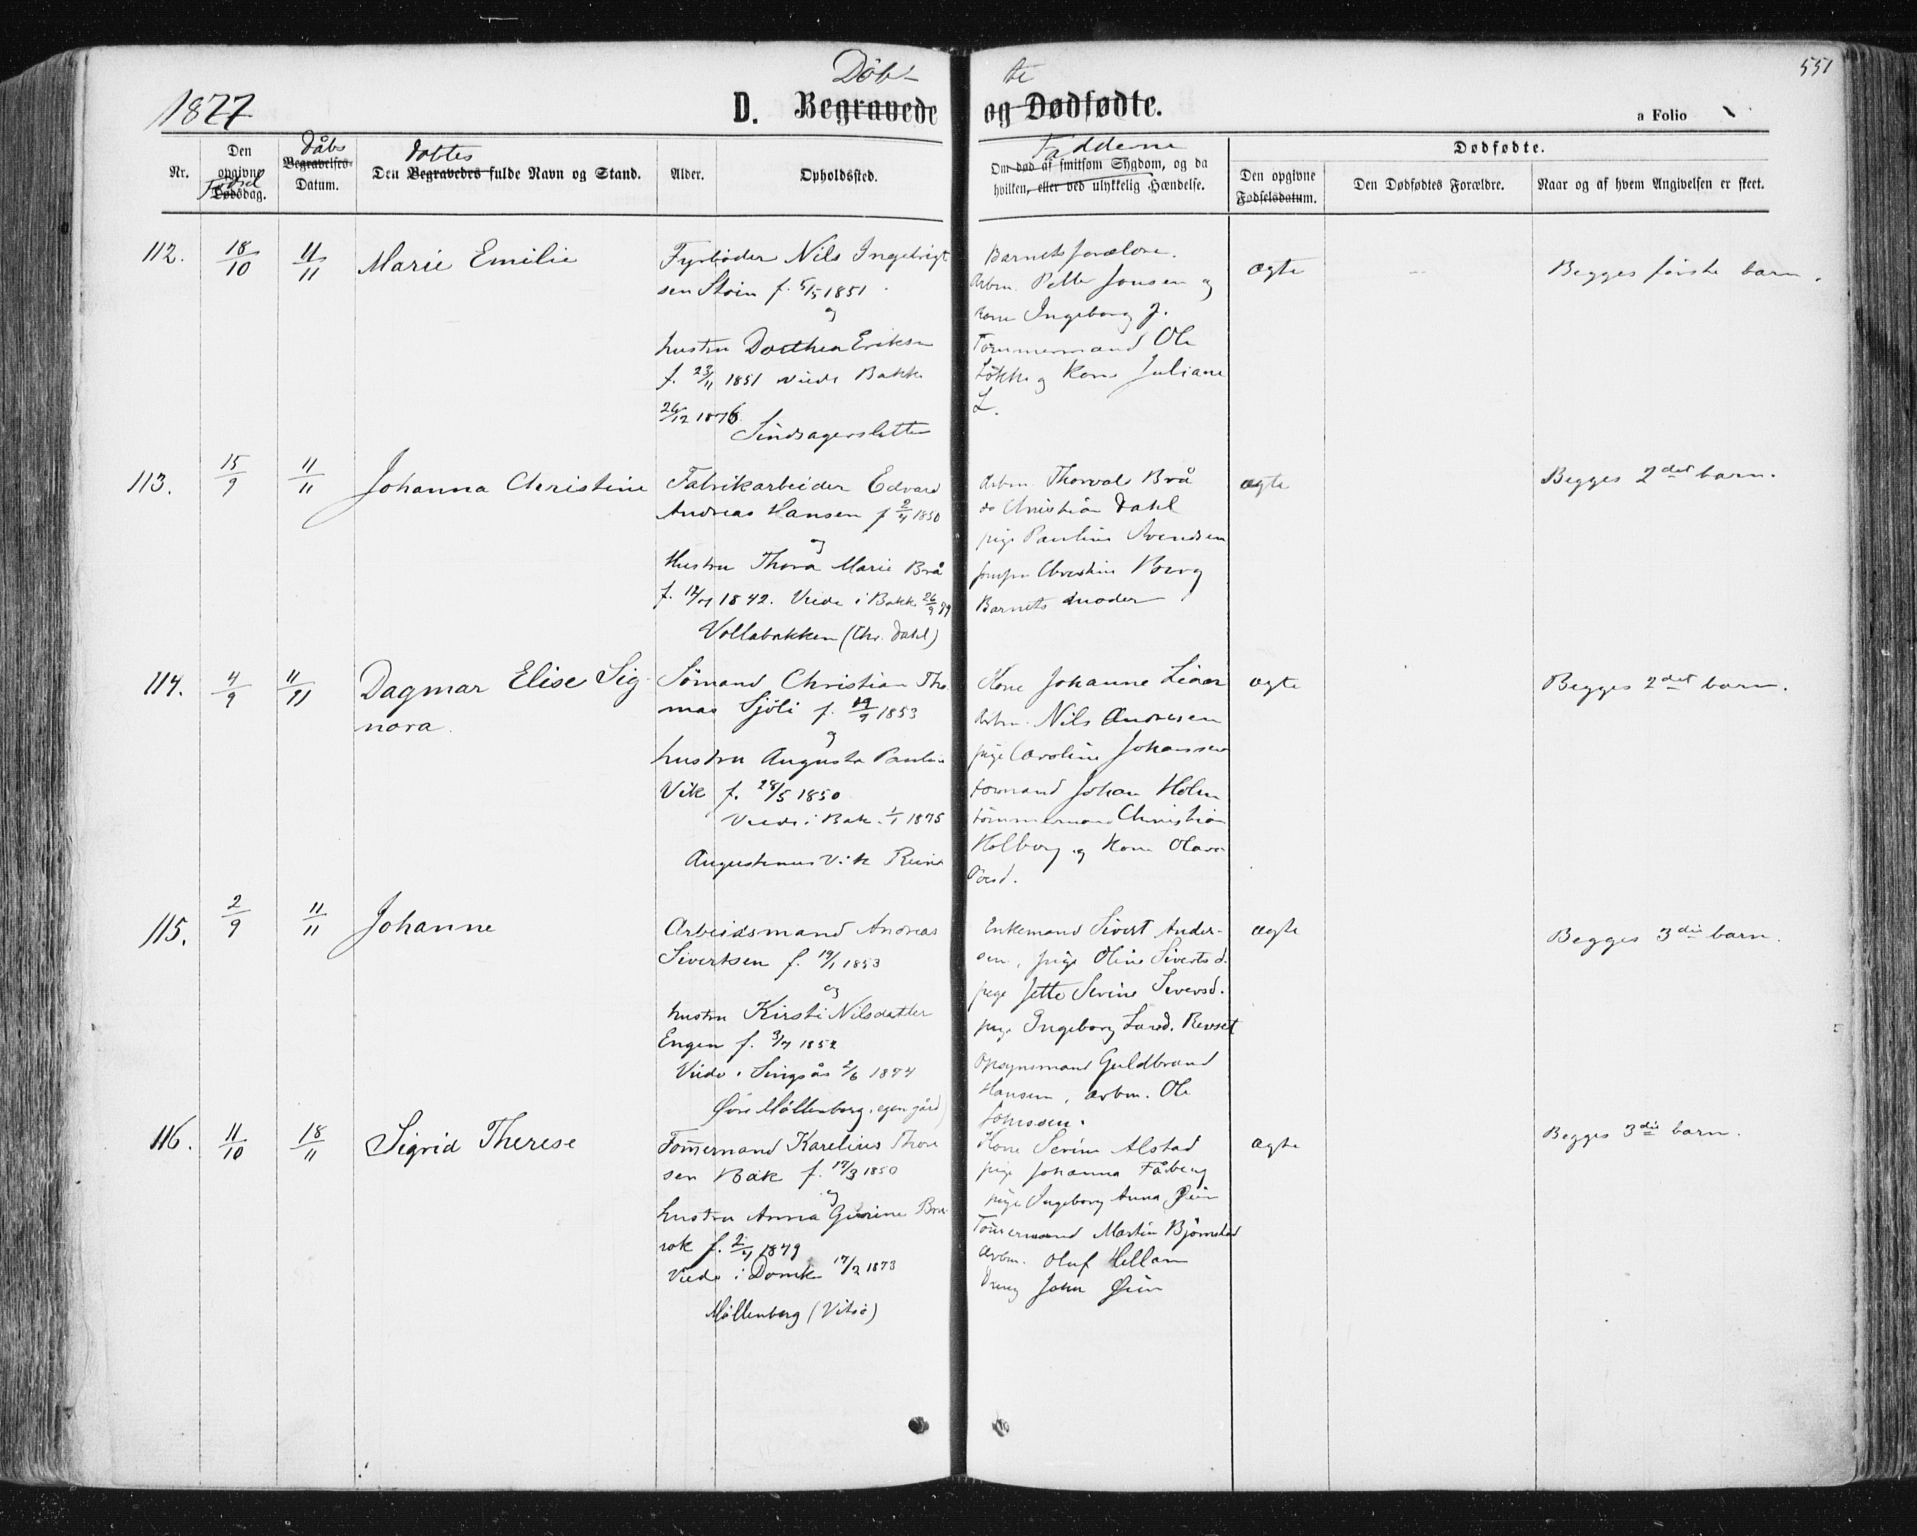 551
Döb-
te
1877
D. Begravede
og Dødfødte.
a Folio
Nr.
Den opgivne Dødsdag.
Fødsel
Dåbs
Begravelses-
Datum.
Döbtes
Den Begravedes fulde Navn og Stand.
Alder.
Opholdssted.
Fadderne
Om død af smitsom Sygdom, og da
hvilken, eller ved ulykkelig Hændelse.
Dødfødte.
Den opgivne
Fødselsdatum.
Den Dødfødtes Forældre.
Naar og af hvem Angivelsen er skeet.
112.
18/10
11/11
Marie Emilie
Fyrböder Nils Ingebrigt
sen Stoin f. 5/5 1851.
og
hustru Dorthea Eriksen
f. 23/11 1851 viede Bakke
26/12 1876
Barnets forældre.
Arbm. Petter Jonsen og
Kone Ingeborg J.
Tömmermand Ole
Lökke og Kone Juliane
L.
ægte
Begges förste barn.
113.
15/9
11/11
Johanna Christine
Fabrikarbeider Edvard
Andreas Hansen f 2/4 1850
og
Hustru Thora Marie Brå
f. 12/4 1842. Viede i Bakk 26/9
Vollabakken (Chr. Dahl)
Arbm. Thorvald Brå
do Christian Dahl
pige Pauline Svendsen
Christine Borg
Barnets moder
ægte
Begges 2det barn.
114.
4/9
11/11
Dagmar Elise Sig-
nora.
Sömand Christian Tho
mas Sjöli f. 19/9 1853
og
hustru Augusta Paulin
Vik f. 28/5 1850
Viede i Bak. 1/1 1875
Augustinus Vik
Kone Johanne Lian
Arbm. Nils Andresen
pige Caroline Johanssen
Johan Holm
tömmermand Christian
Holberg og Kone Olava
ægte
Begges 2det barn.
115.
2/9
11/11
Johanne
Arbeidsmand Andreas
Sivertsen f. 19/1 1853
og
hustru Kirsti Nilsdatter
Engen f. 3/7 1852
Viede i Singsås 2/6 1874
Øvre Möllenberg, egen gård)
Enkemand Sivert Ander-
sen, pige Oline Sivertsd.
pige Jette Serine Siversd.
pige Ingeborg Larsd. Renset
Opsynsmand Guldbrand
Hansen, arbm. Ole
Johnssen.
ægte
Begges 3die barn.
116.
11/10
18/11
Sigrid Therese
Tom̄ermand Karelius Thore
sen Bak f. 17/3 1850
og
hustru Anna Gurine Bru
rok f. 2/4 1879
Viede i Domk 17/2 1873
Möllenberg (Vitsö)
Kone Serine Alstad
pige Johanna Fåberg
pige Ingeborg Anna Øien
Tom̄ermand Martin Björnstad
Arbm. Oluf Hellam
Dreng John Øien
ægte
Begges 3die barn.